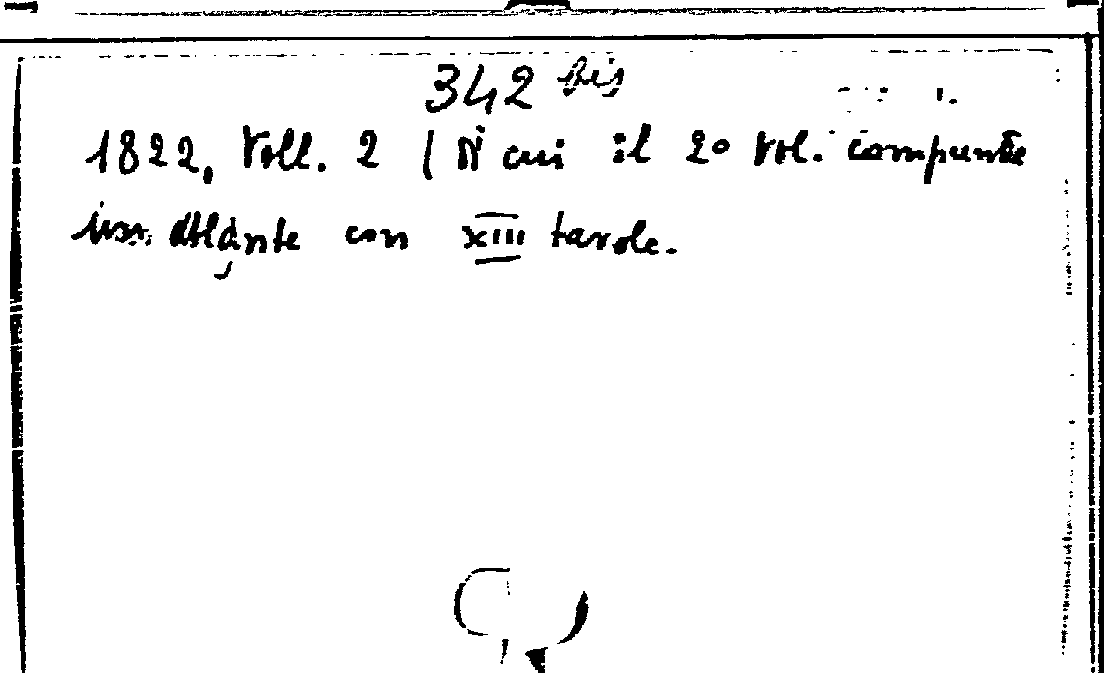 342 bis
1822, Voll. 2 (Di cui il 2° Vol. comprende
un Atlante con XIII tavole.